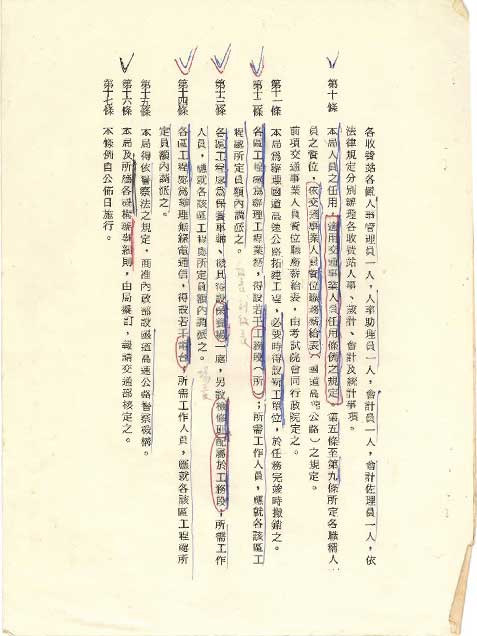 各收費站各置人事管理員一人，人事助理員一人，會計員一人，會計佐理員一人，依
法律規定分別辦理各收費站人事、歲計、會計及統計事項。
第十條　本局人員之任用，適用交通事業人員任用條例之規定，第五條至第九條所定各職稱人
員之資位，依交通事業人員資位職務薪給表（國道高速公路）之規定。
前項交通事業人員資位職務薪給表，由考試院會同行政院定之。
第十一條　本局為辦理國道高速公路拓建工程，必要時得設新工單位，於任務完竣時撤銷之。
第十二條　各區工程處為辦理工程業務，得設若干工務段（所），所需工作人員，應就各該區工
程處所定員額內調派之。
第十三條　各區工程處為保養車輛、機具得設保養場一處，另設檢修班配屬於工務段，所需工作
人員，應就各該區工程處所定員額內調派之。
第十四條　各區工程處為辦理無線電通信，得設若干電台，所需工作人員，應就各該區工程處所
定員額內調派之。
第十五條　本局得依警察法之規定，商准內政部設國道高速公路警察機構。
第十六條　本局及所屬各機構辦事細則，由局擬訂，報請交通部核定之。
第十七條　本條例自公佈日施行。